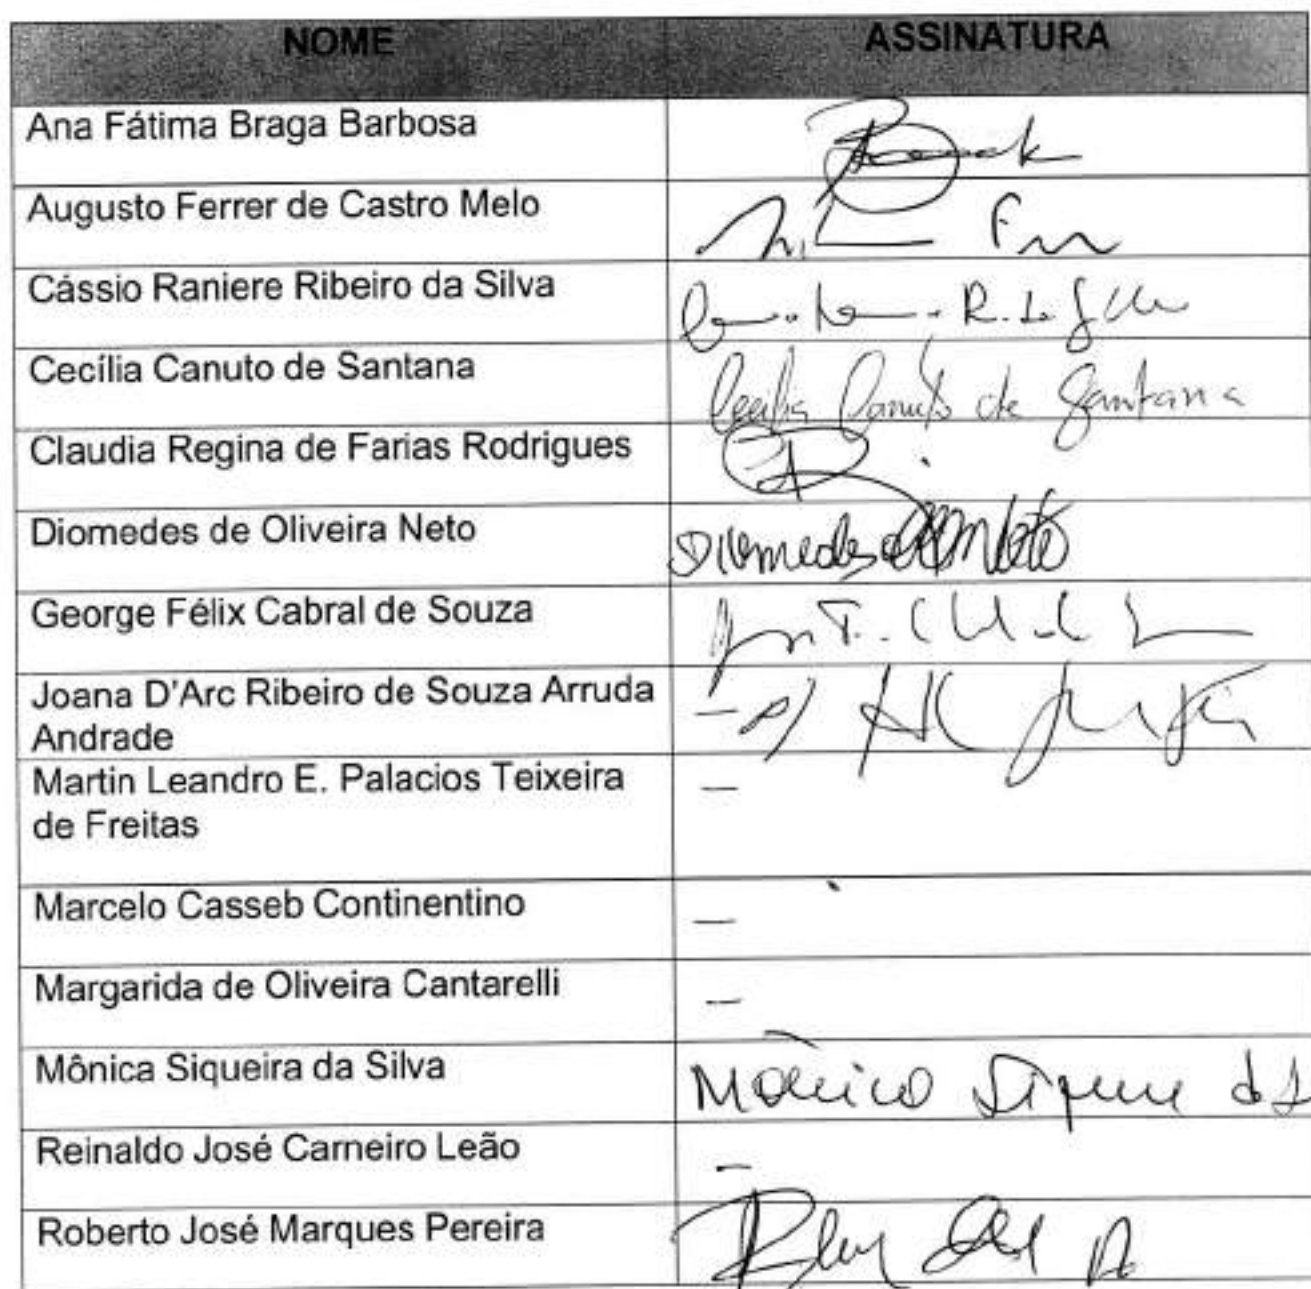 NOME ASSINATURA
Ana Fátima Braga Barbosa
Augusto Ferrer de Castro Melo
Cássio Raniere Ribeiro da Silva R. da Silva
Cecília Canuto de Santana Cecilia Canuto de Santana
Claudia Regina de Farias Rodrigues
Diomedes de Oliveira Neto Diomedes de O Neto
George Félix Cabral de Souza
Joana D'Arc Ribeiro de Souza Arruda
Andrade
Martin Leandro E. Palacios Teixeira –
de Freitas
Marcelo Casseb Continentino –
Margarida de Oliveira Cantarelli –
Mônica Siqueira da Silva Mônica Siqueira da S
Reinaldo José Carneiro Leão –
Roberto José Marques Pereira